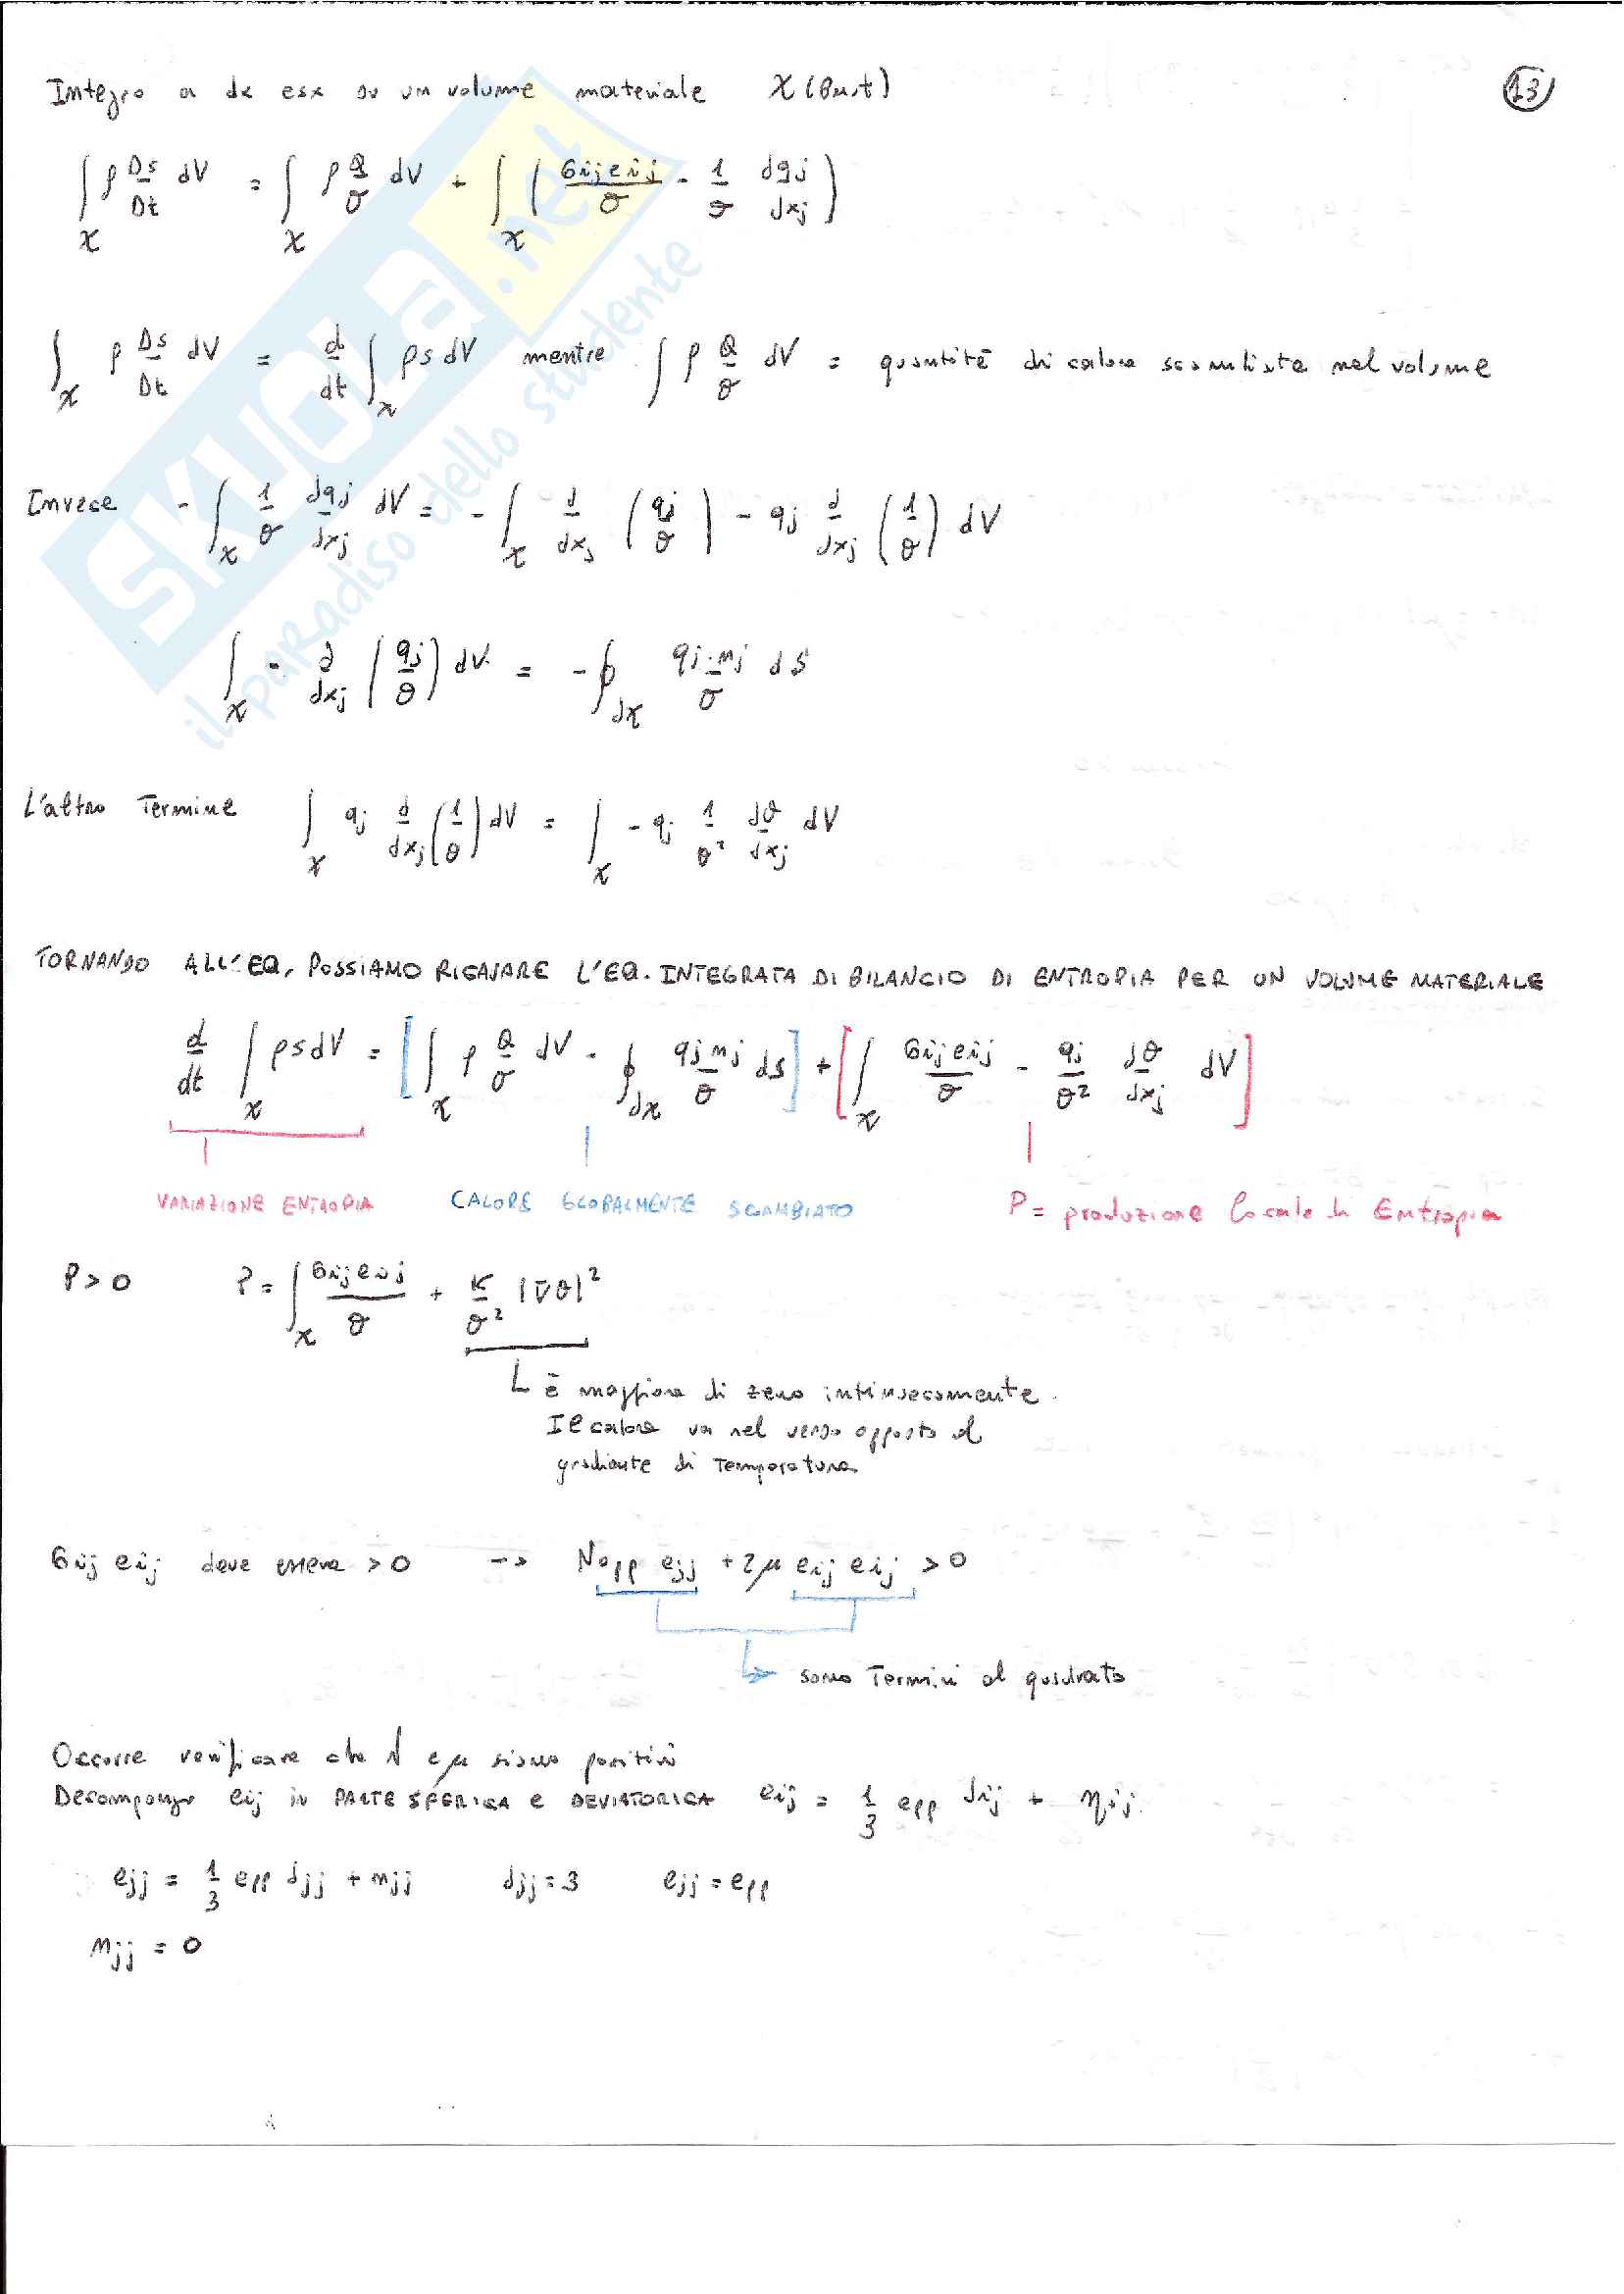 Integro a dx e sx su un volume materiale χ(Bm,t) 13
∫_χ ρ Ds/Dt dV = ∫_χ ρ Q/θ dV + ∫_χ ( σij eij/θ - 1/θ dqj/dxj )
∫_χ ρ Ds/Dt dV = d/dt ∫_χ ρs dV mentre ∫ ρ Q/θ dV = quantità di calore scambiata nel volume
Invece - ∫_χ 1/θ dqj/dxj dV = - ∫_χ d/dxj ( qj/θ ) - qj d/dxj ( 1/θ ) dV
∫_χ - ∂/dxj ( qj/θ ) dV = - ∮_dχ qj·nj/θ dS
L'altro Termine ∫_χ qj d/dxj ( 1/θ ) dV = ∫_χ - qj 1/θ² dθ/dxj dV
TORNANDO ALL'EQ, POSSIAMO RICAVARE L'EQ. INTEGRATA DI BILANCIO DI ENTROPIA PER UN VOLUME MATERIALE
d/dt ∫_χ ρs dV = [ ∫_χ ρ Q/θ dV - ∮_dχ qj nj/θ dS ] + [ ∫_χ σij eij/θ - qj/θ² dθ/dxj dV ]
VARIAZIONE ENTROPIA CALORE GLOBALMENTE SCAMBIATO P = produzione locale di Entropia
P > 0 P = ∫_χ σij eij/θ + K/θ² |∇θ|²
è maggiore di zero intrinsecamente.
Il calore va nel verso opposto al
gradiente di Temperatura
σij eij deve essere > 0 → λ epp ejj + 2μ eij eij > 0
sono Termini al quadrato
Occorre verificare che λ e μ siano positivi
Decompongo eij in PARTE SFERICA e DEVIATORICA eij = 1/3 epp δij + ηij.
ejj = 1/3 epp δjj + ηjj δjj = 3 ejj = epp
ηjj = 0
SKUOLA.net
il paradiso dello studente